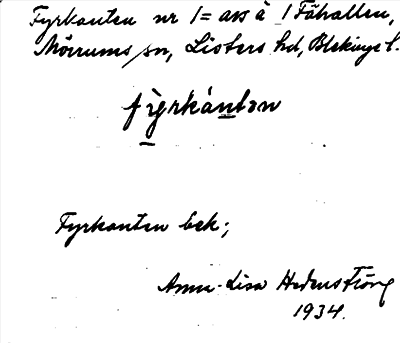 Fyrkanten nr 1 = ass à 1 Fåhallen,
Mörrums sn, Listers hd, Blekinge l.
fỳrkántən
Fyrkanten bek;
Anna-Lisa Hedenström
1934.